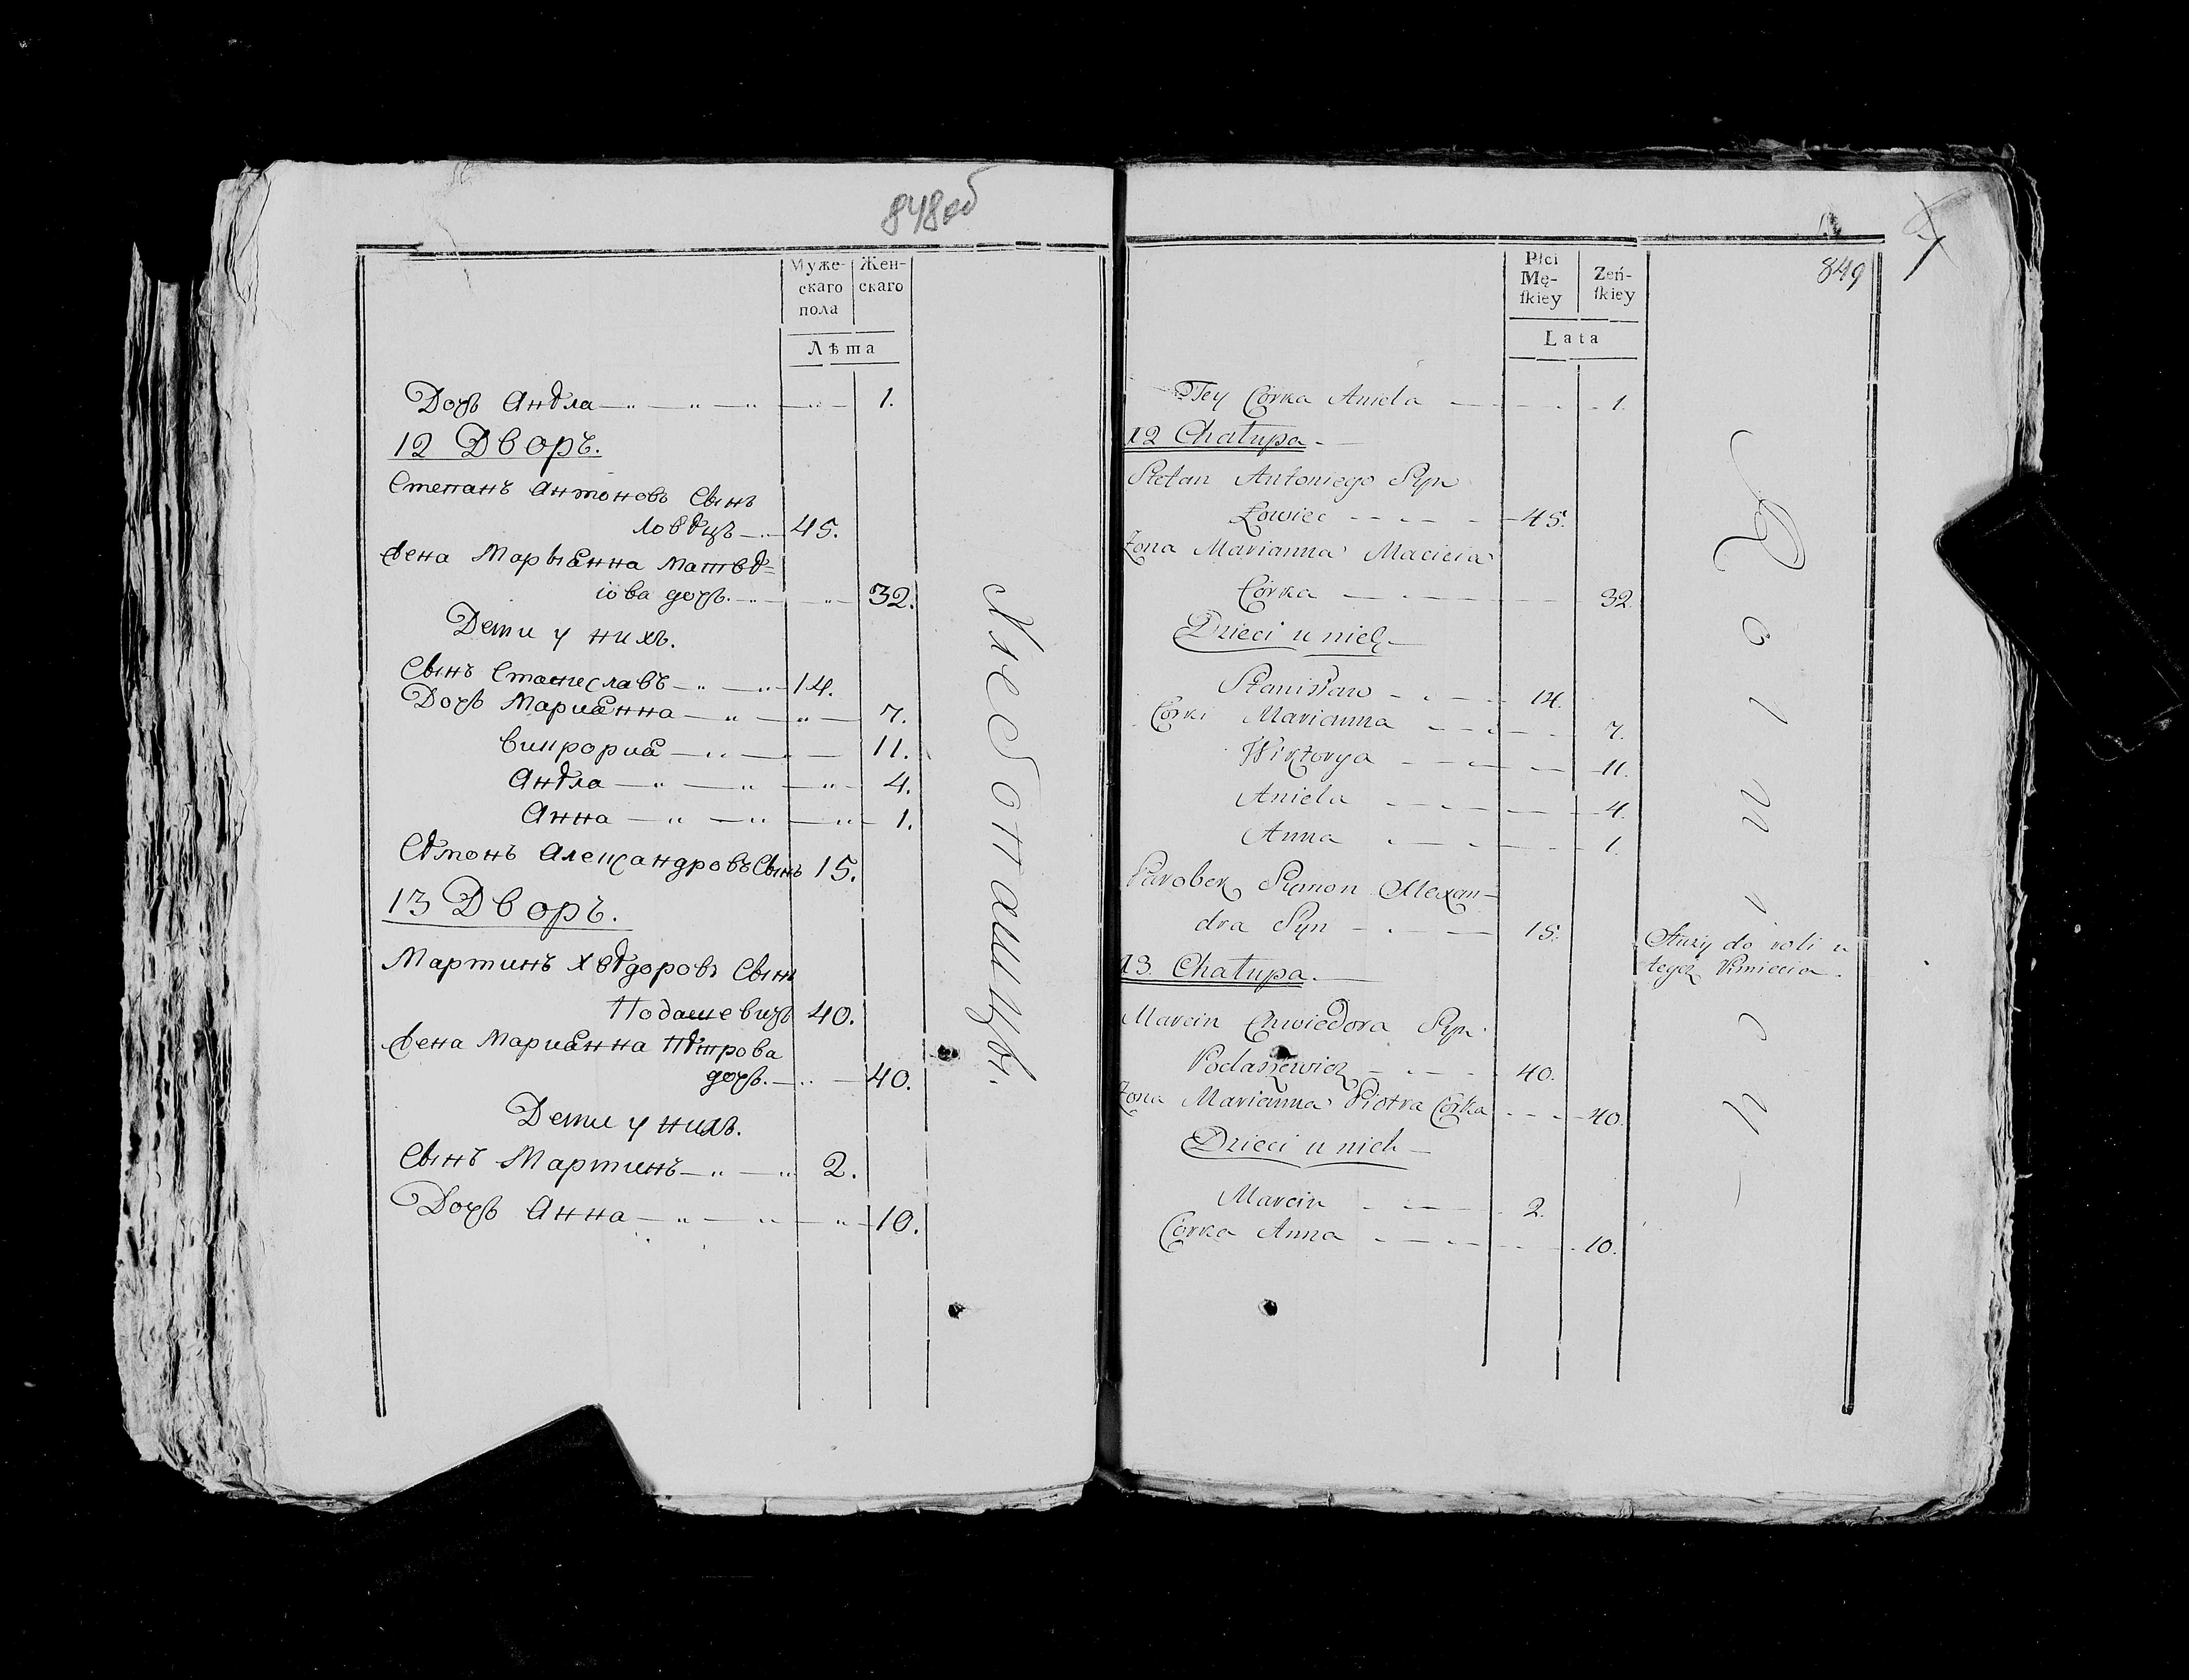 848об
Муже-
скаго
пола
Жен-
скаго
Лѣта
Дочь Анѣла 1.
12 Дворъ.
Степанъ Антоновъ Сынъ
Ловѣцъ 45.
Жена Марыанна Матвѣ=
іова дочь. 32.
Дети у нихъ.
Сынъ Станиславъ 14.
Дочь Марианна 7.
Виктория 11.
Анѣла 4.
Анна 1.
Сѣмонъ Александровъ Сынъ 15.
13 Дворъ.
Мартинъ Хвѣдоровъ Сынъ
Подашевичь 40.
Жена Марианна Пѣтрова
дочь. 40.
Дети у нихъ.
Сынъ Мартинъ 2.
Дочь Анна 10.
Хлебопашцы.
849
Płci
Mę-
ſkiey
Zeń-
ſkiey
Lata
Tey Córka Aniela 1.
12 Chałupa
Stefan Antoniego Syn
Łowiec 45.
Żona Marianna Macieia
Córka 32.
Dzieci u nich
Stanisław 14.
Córki Marianna 7.
Wiktorya 11.
Aniela 4.
Anna 1.
Parobek Symon Alexan-
dra Syn 15.
Służy do roli u
tegoż Kmiecia.
13 Chałupa.
Marcin Chwiedora Syn
Podaszewicz 40.
Żona Marianna Piotra Córka 40.
Dzieci u nich
Marcin 2.
Córka Anna 10.
Rolnicy